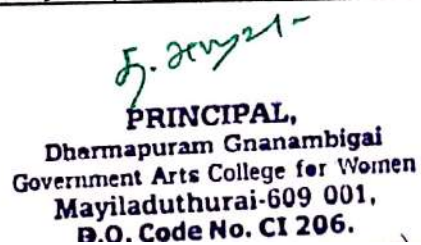 PRINCIPAL,
Dharmapuram Gnanambigai
Government Arts College for Women
Mayiladuthurai-609 001,
D.O. Code No. CI 206.